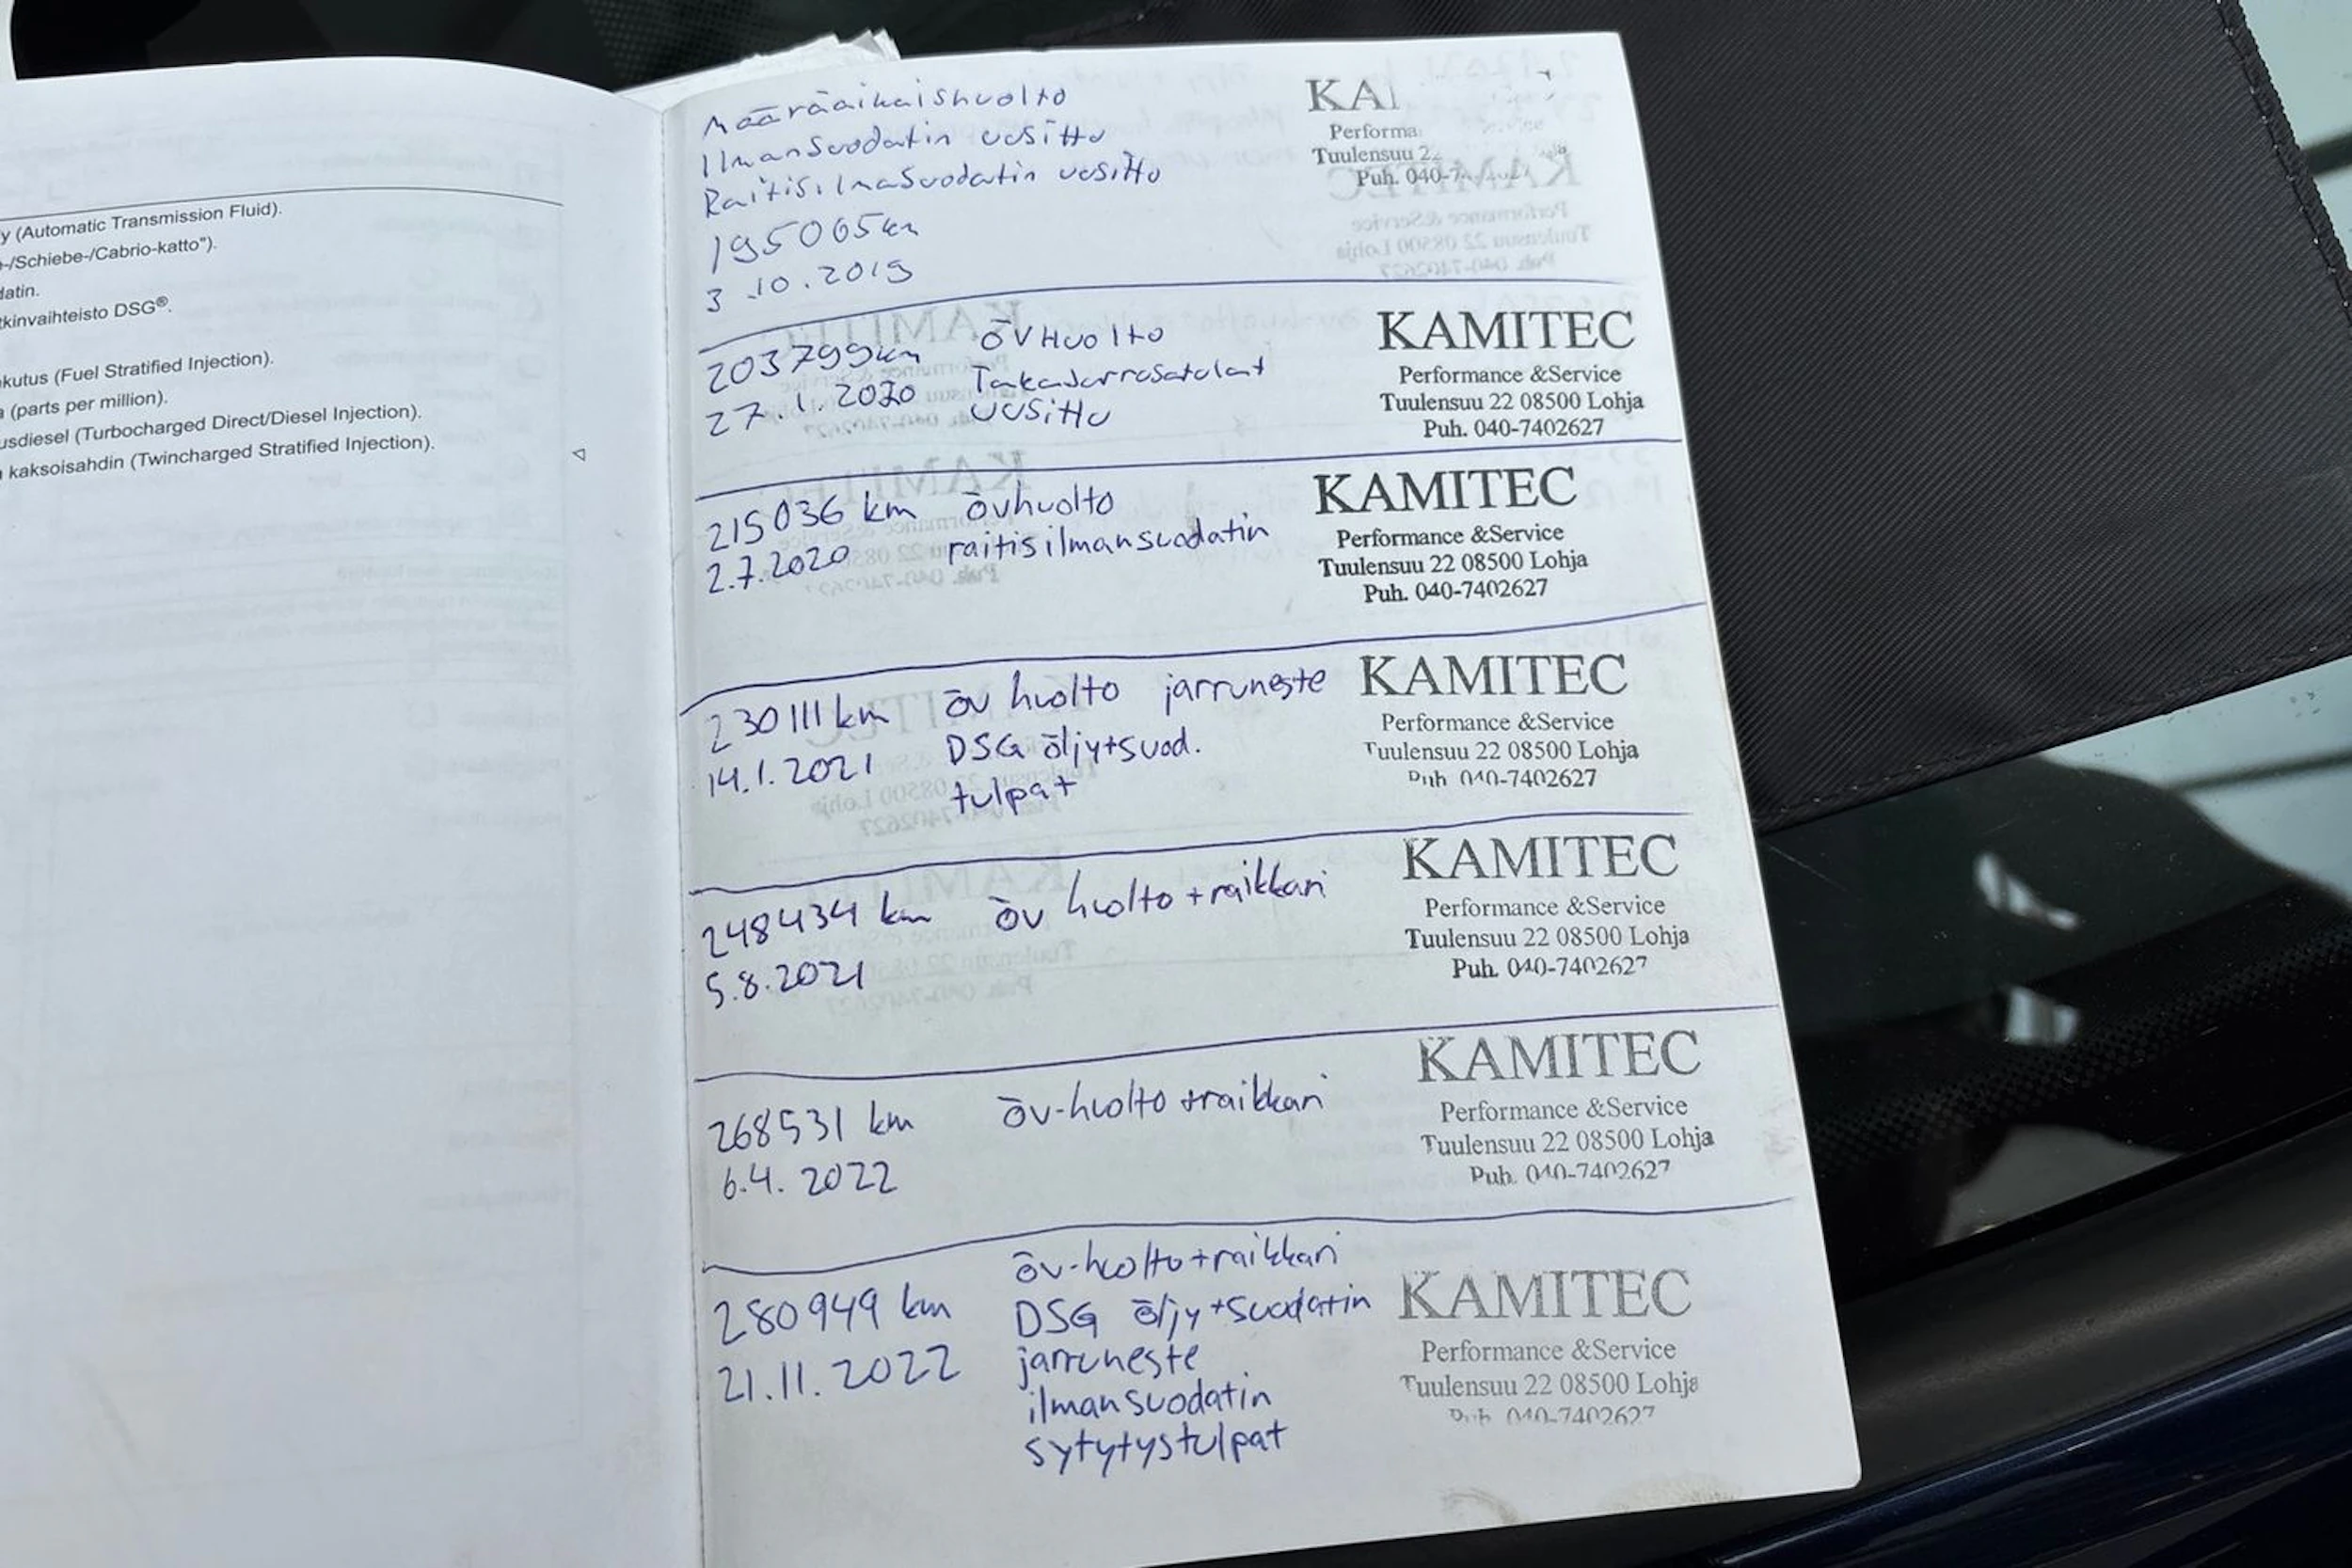 y (Automatic Transmission Fluid).
-/Schiebe-/Cabrio-katto").
latin.
tkinvaihteisto DSG®.
kutus (Fuel Stratified Injection).
a (parts per million).
usdiesel (Turbocharged Direct/Diesel Injection).
kaksoisahdin (Twincharged Stratified Injection).
Määräaikaishuolto
Ilmansuodatin uusittu
Raitisilmasuodatin uusittu
195065km
3.10.2019
KA
Performa
Tuulensuu 22
Puh. 040-7
203799km ÖVHuolto
27.1.2020 Takajarrusatulat
uusittu
KAMITEC
Performance &Service
Tuulensuu 22 08500 Lohja
Puh. 040-7402627
215036 km övhuolto
2.7.2020 raitisilmansuodatin
KAMITEC
Performance &Service
Tuulensuu 22 08500 Lohja
Puh. 040-7402627
230111km öv huolto jarruneste
14.1.2021 DSG öljy+suod.
tulpat
KAMITEC
Performance &Service
Tuulensuu 22 08500 Lohja
Puh 040-7402627
248434 km öv huolto +raikkari
5.8.2021
KAMITEC
Performance &Service
Tuulensuu 22 08500 Lohja
Puh. 040-7402627
268531 km öv-huolto +raikkari
6.4.2022
KAMITEC
Performance &Service
Tuulensuu 22 08500 Lohja
Puh. 040-7402627
öv-huolto+raikkari
280949 km DSG öljy+suodatin
21.11.2022 jarruneste
ilmansuodatin
sytytystulpat
KAMITEC
Performance &Service
Tuulensuu 22 08500 Lohja
Puh. 040-7402627